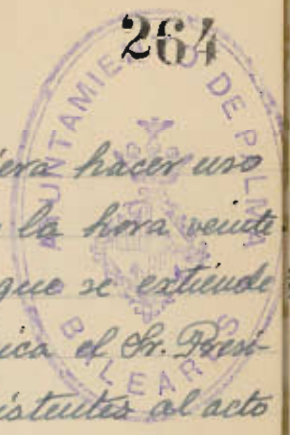 264
AYUNTAMIENTO DE PALMA
BALEARES
iera hacer uso
la hora veinte
que se extiende
ica el Sr. Presi-
istentes al acto